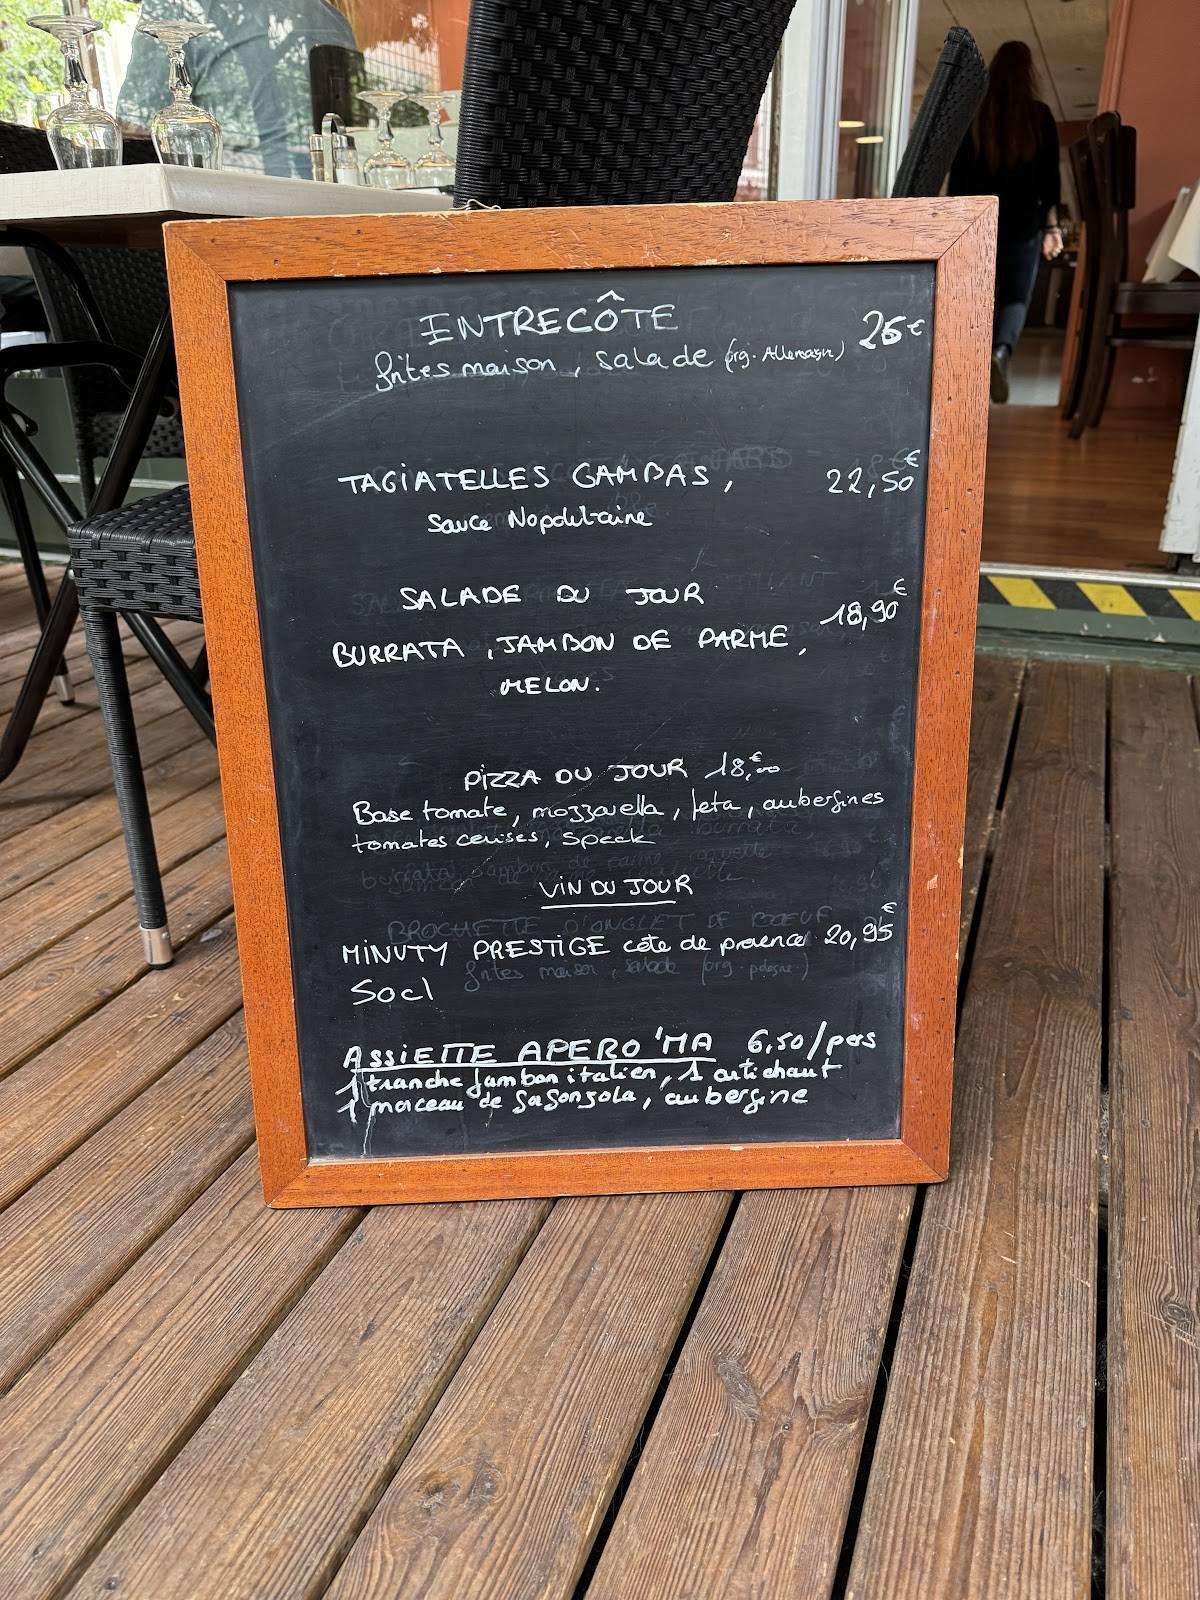 ENTRECÔTE 26€
frites maison, salade (org. Allemagne)
TAGIATELLES GAMBAS, 22,50€
Sauce Napolitaine
SALADE DU JOUR
BURRATA, JAMBON DE PARME, 18,90€
MELON.
PIZZA DU JOUR 18,€00
Base tomate, mozzarella, feta, aubergines
tomates cerises, Speck
VIN DU JOUR
MINUTY PRESTIGE côte de provence 20,95€
50cl
ASSIETTE APERO'MA 6,50/pers
1 tranche Jambon italien, 1 artichaut
1 morceau de gagonzola, aubergine